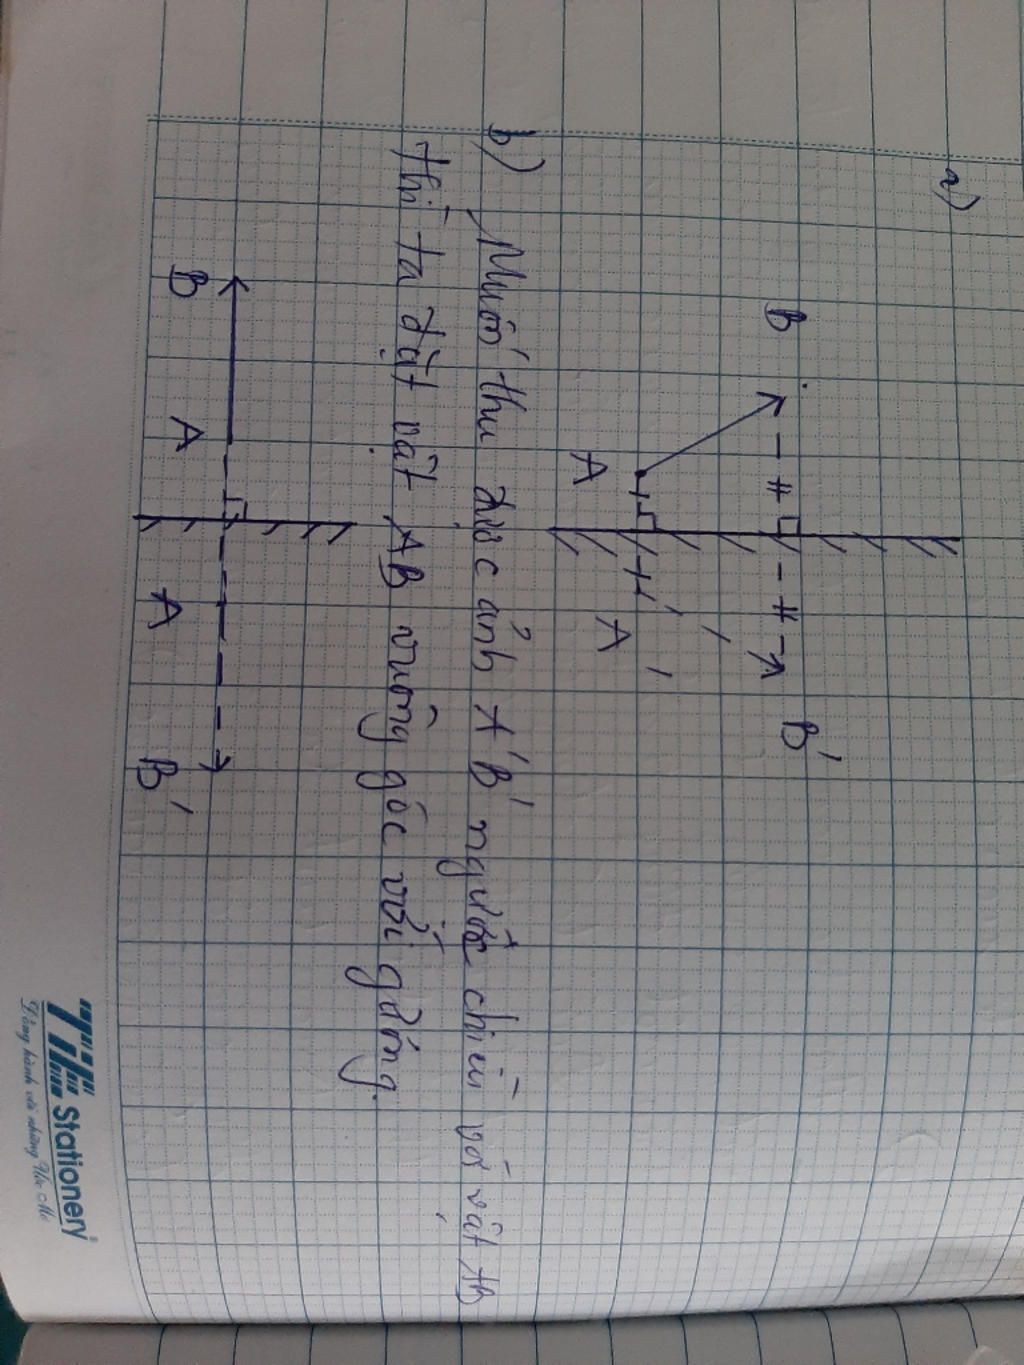 a)
B
B'
A
A'
b) Muốn thu được ảnh A'B' ngược chiều với vật AB
thì ta đặt vật AB vuông góc với gương.
B
A
A
B'
TL Stationery
Đồng hành với những Ước Mơ